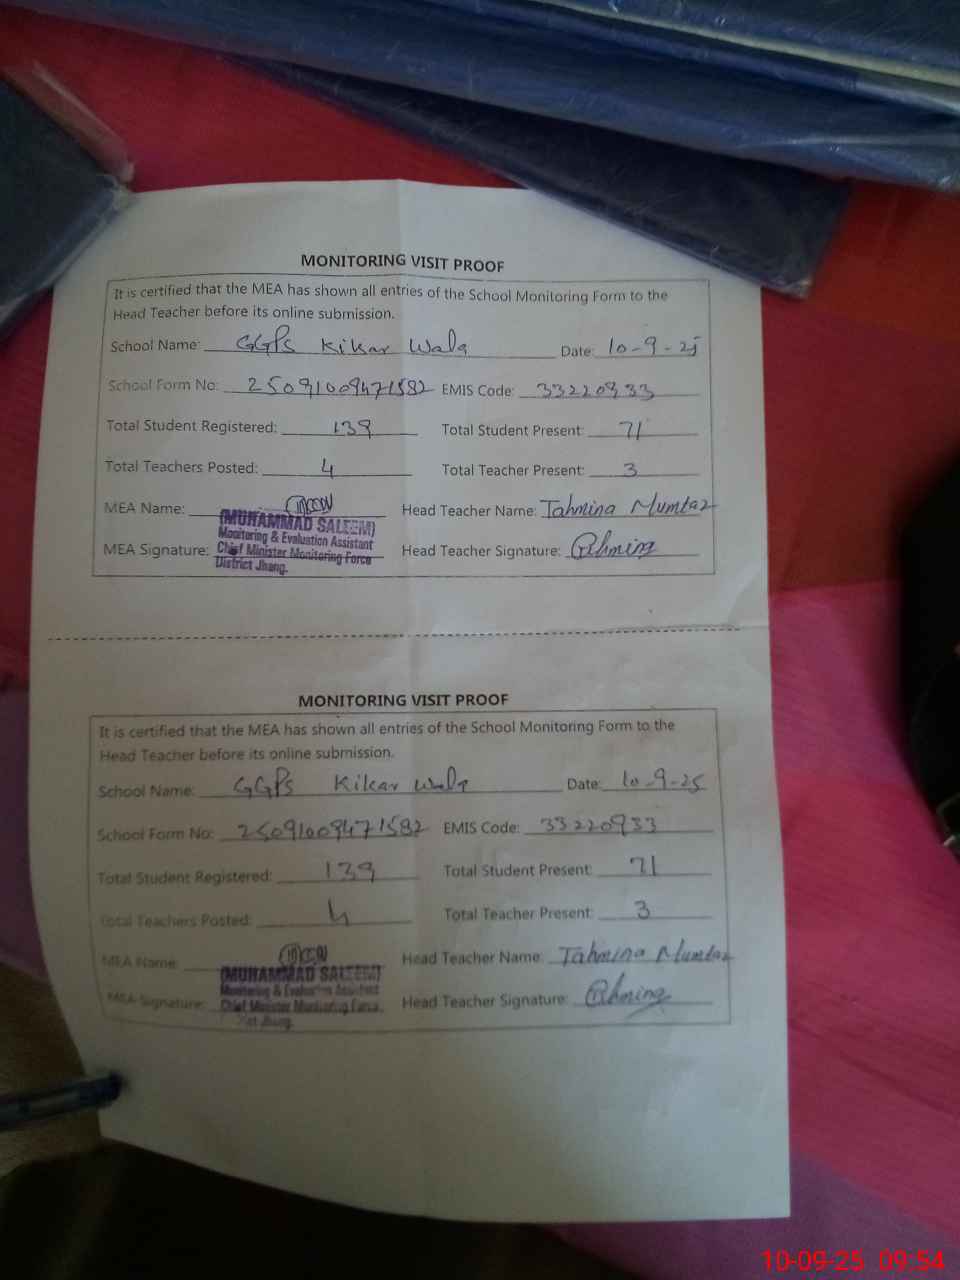 MONITORING VISIT PROOF
It is certified that the MEA has shown all entries of the School Monitoring Form to the
Head Teacher before its online submission.
School Name: GGPS Kikar Wala Date: 10-9-25
School Form No: 25091009471582 EMIS Code: 33220933
Total Student Registered: 139 Total Student Present: 71
Total Teachers Posted: 4 Total Teacher Present: 3
MEA Name: Head Teacher Name: Tahmina Mumtaz
(MUHAMMAD SALEEM)
Monitoring & Evaluation Assistant
MEA Signature: Chief Minister Monitoring Force Head Teacher Signature:
District Jhang.
MONITORING VISIT PROOF
It is certified that the MEA has shown all entries of the School Monitoring Form to the
Head Teacher before its online submission.
School Name: GGPS Kikar Wala Date: 10-9-25
School Form No: 25091009471582 EMIS Code: 33220933
Total Student Registered: 139 Total Student Present: 71
Total Teachers Posted: 4 Total Teacher Present: 3
MEA Name: Head Teacher Name: Tahmina Mumtaz
(MUHAMMAD SALEEM)
Monitoring & Evaluation Assistant
MEA Signature: Chief Minister Monitoring Force Head Teacher Signature:
Jhang.
10-09-25 09:54